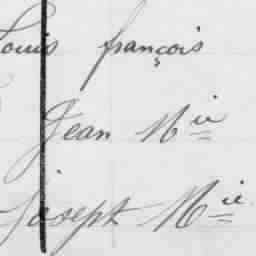 Louis françois
Jean Mie
Joseph Mie